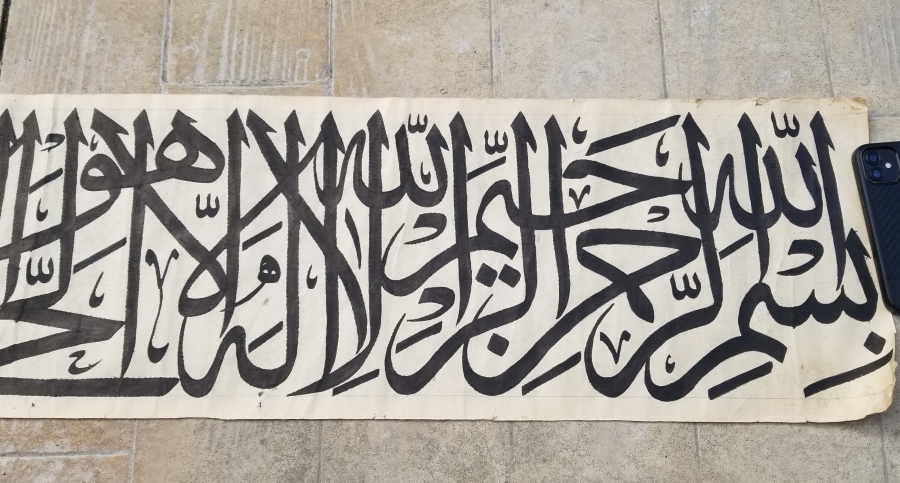 بسم الله الرحمن الرحيم الله لا إله إلا هو الحي